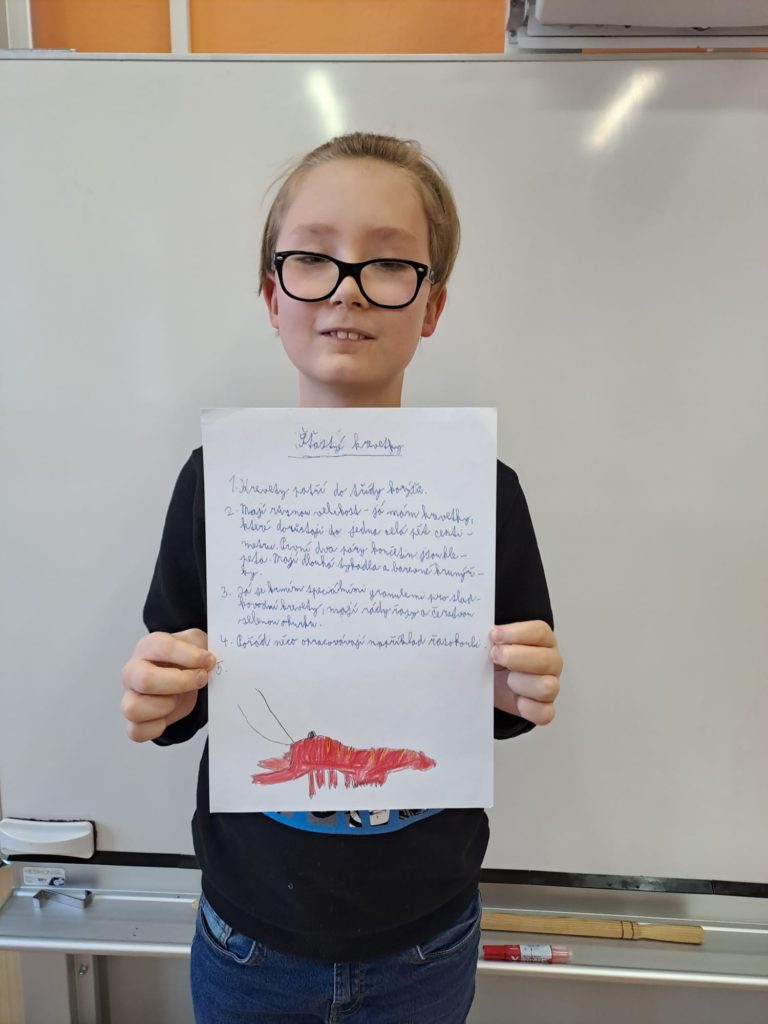 Šťastný krevetky
1. Krevety patří do třídy korýšů.
2. Mají různou velikost - já mám krevetky,
které dorůstají do jedna celá pět centi-
metru. První dva páry končetin jsou kle-
peta. Mají dlouhá tykadla a barevné krunýř-
ky.
3. Já je krmím speciálními granulemi pro slad-
kovodní krevety, mají rády řasy a čerstvou
zelenou okurku.
4. Pořád něco opracovávají například řasokouli.
5.